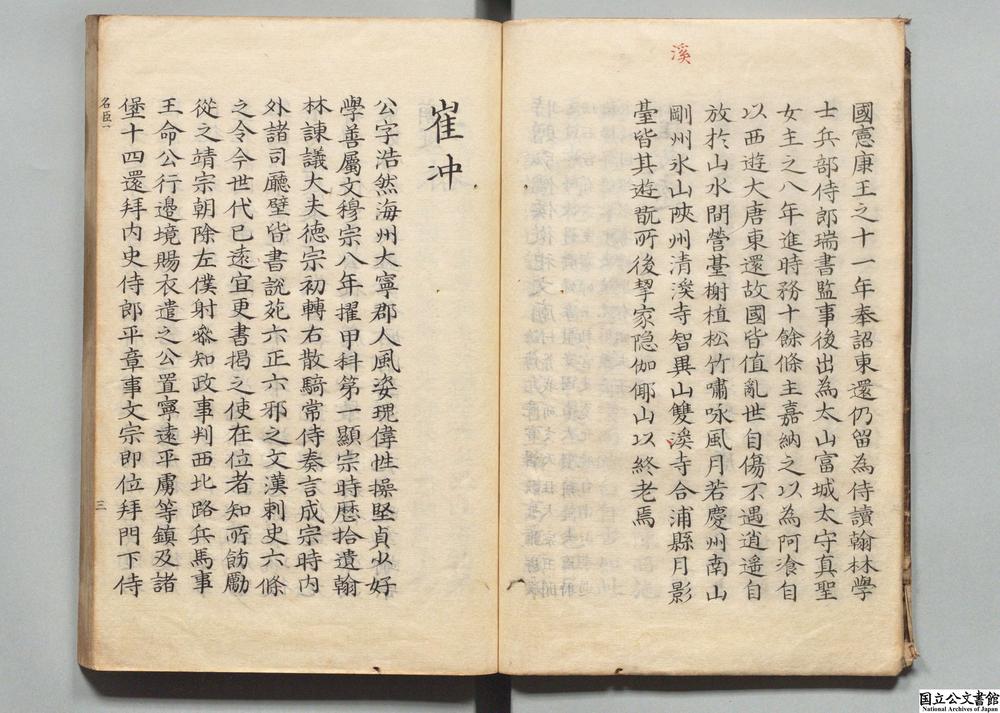 溪
國憲康王之十一年奉詔東還仍留為侍讀翰林學
士兵部侍郎瑞書監事後出為太山富城太守真聖
女主之八年進時務十餘條主嘉納之以為阿飡自
以西遊大唐東還故國皆值亂世自傷不遇逍遥自
放於山水間營䑓榭植松竹嘯咏風月若慶州南山
剛州氷山陜州清溪寺智異山雙溪寺合浦縣月影
䑓皆其遊翫所後挈家隐伽倻山以終老焉
崔冲
公字浩然海州大寧郡人風姿瑰偉性操堅貞少好
學善屬文穆宗八年擢甲科第一顯宗時歷拾遺翰
林諌議大夫德宗初轉右散騎常侍奏言成宗時内
外諸司廳壁皆書説苑六正六邪之文漢刺史六條
之令今世代已遠宜更書揭之使在位者知所飭勵
從之靖宗朝除左僕射叅知政事判西北路兵馬事
王命公行邊境賜衣遣之公置寧遠平虜等鎮及諸
堡十四還拜内史侍郎平章事文宗即位拜門下侍
名臣一
三
国立公文書館
National Archives of Japan